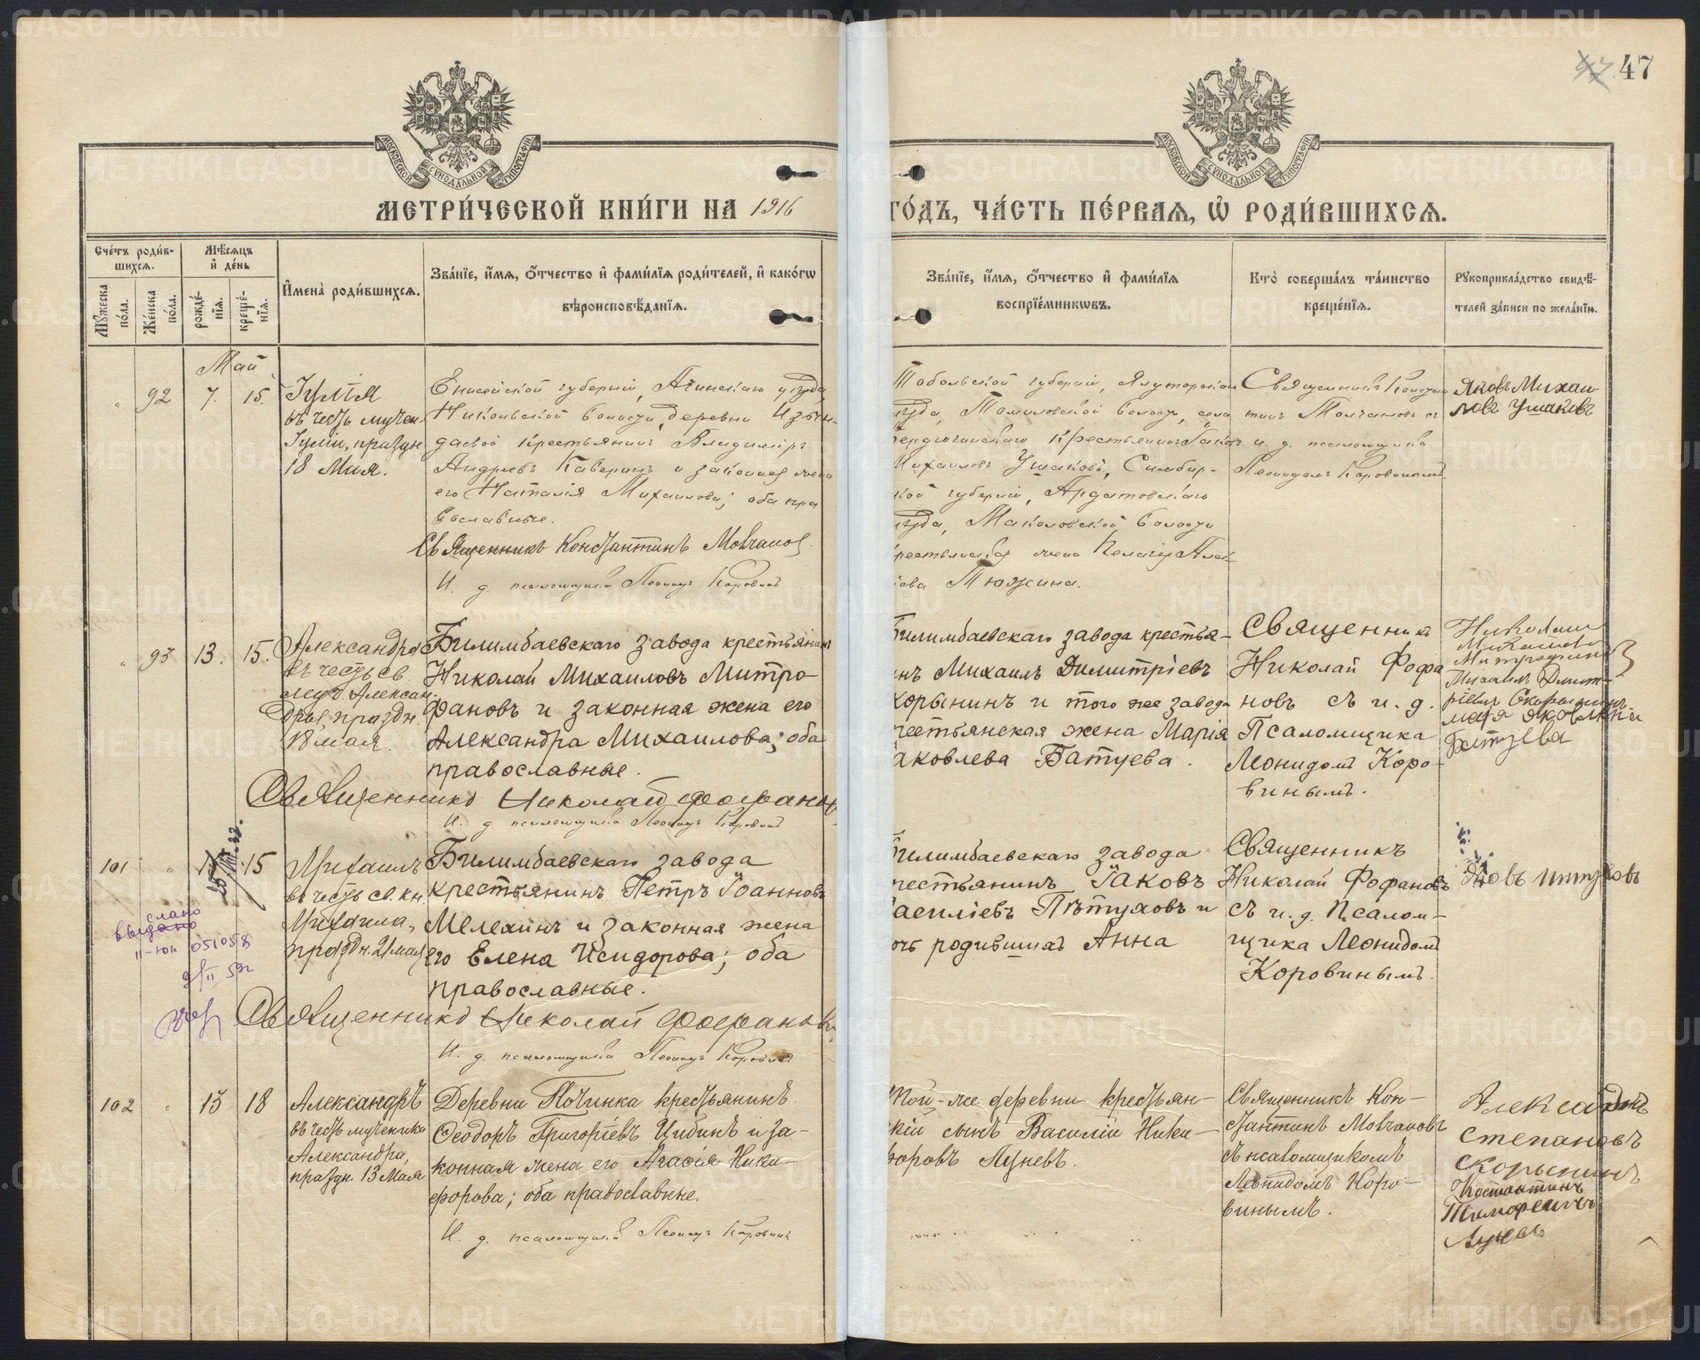 47
МОСКОВСКОЙ СѴНОДАЛЬНОЙ ТИПОГРАФІИ
МОСКОВСКОЙ СѴНОДАЛЬНОЙ ТИПОГРАФІИ
МЕТРИ́ЧЕСКОЙ КНИ́ГИ НА 1916
ГО́ДЪ, ЧА́СТЬ ПЕ́РВАЯ, Ѡ҆ РОДИ́ВШИХСѦ.
Сче́тъ роди́в-
шихсѧ.
Мꙋ́жеска
по́ла.
Же́нска
по́ла.
Мѣ́сѧцъ
и҆ де́нь
рожде́-
нїѧ.
креще́-
нїѧ.
И҆мена̀ роди́вшихсѧ.
Зва́нїе, и҆́мѧ, ѻ҆́тчество и҆ фами́лїѧ роди́телей, и҆ како́гѡ
вѣроисповѣ́данїѧ.
Зва́нїе, и҆́мѧ, ѻ҆́тчество и҆ фами́лїѧ
воспрїе́мникѡвъ.
Кто̀ соверша́лъ та́инство
креще́нїѧ.
Рꙋкоприкла́дство свидѣ́-
телей за́писи по жела́нїю.
Май
92
7.
15.
Іулія
въ честь мучен.
Іуліи, праздн.
18 Мая.
Енисейской губерніи, Ачинскаго уѣзда
Никольской волости, деревни
крестьянинъ Владиміръ
Андреевъ Каверинъ и законная жена
его Наталія Михаилова; оба пра
вославные.
Священникъ Константинъ Молчановъ
И. д. псаломщика Леонидъ Коровинъ
Тобольской губерніи, Ялуторскаго
уѣзда, Томиловской волости, села
крестьянинъ Іаковъ
Михаиловъ Ушаковъ, Симбир-
ской губерніи, Ардатовскаго
уѣзда, Маколовской волости
крестьянская жена Пелагія Алек
Тюжина.
Священникъ Констан
тинъ Молчановъ съ
и. д. псаломщика
Леонидомъ Коровинымъ.
Яковъ Михаи
ловъ Ушаковъ
93
13.
15.
Александра
въ честь св.
муч. Алексан-
дры, праздн.
18 мая.
Билимбаевскаго завода крестьянинъ
Николай Михаиловъ Митро-
фановъ и законная жена его
Александра Михаилова; оба
православные.
Священникъ Николай Фофановъ
И. д. псаломщика Леонидъ Коровинъ
Билимбаевскаго завода крестья-
нъ Михаилъ Димитріевъ
корынинъ и того же завода
рестьянская жена Марія
аковлева Батуева.
Священникъ
Николай Фофа
новъ съ и. д.
Псаломщика
Леонидомъ Коро-
винымъ.
Николай
Михаиловъ
Митрофановъ
Михаилъ Дмит-
ріевъ Скорынинъ
Марія Яковлевна
Батуева
101
15
Михаилъ
въ честь св. кн.
Михаила,
праздн. 21 мая
Билимбаевскаго завода
крестьянинъ Петръ Іоанновъ
Мелехинъ и законная жена
его Елена Исидорова; оба
православные.
Священникъ Николай Фофановъ
И. д. псаломщика Леонидъ Коровинъ
выслано
II-ЮП 051058
Билимбаевскаго завода
рестьянинъ Іаковъ
асиліевъ Пѣтуховъ и
очь родившихъ Анна
Священникъ
Николай Фофановъ
съ и. д. Псалом-
щика Леонидомъ
Коровинымъ.
Яковъ Питуховъ
102
13
18
Александръ
въ честь мученика
Александра,
праздн. 13 Мая
Деревни Починка крестьянинъ
Ѳеодоръ Григоріевъ Цибинъ и за-
конная жена его Агаѳія Ники-
форова; оба православные.
И. д. псаломщика Леонидъ Коровинъ
Той-же деревни крестьян-
скій сынъ Василій Ники-
форовъ Луневъ.
Священникъ Кон-
стантинъ Молчановъ
съ псаломщикомъ
Леонидомъ Коро-
винымъ.
Александръ
Степановъ
Скорынинъ
Костантинъ
Тимофеевъ
Луневъ
METRIKI.GASO-URAL.RU